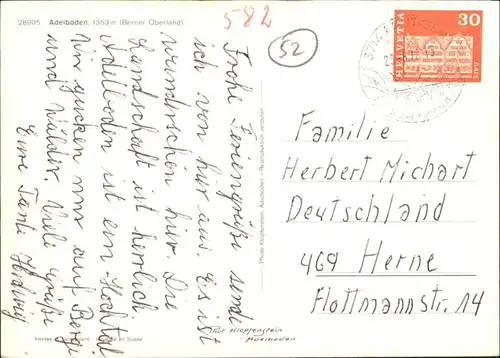 28905 Adelboden, 1353 m (Berner Oberland)
582
52
HELVETIA 30
Frohe Feriengrüße send
ich von hier aus. Es ist
wunderschön hier. Die
Landschaft ist herrlich.
Adelboden ist ein Hochtal
Wir gucken nur auf Berge
und Wälder. Viele Grüße
Eure Tante Hedwig
Photo Klopfenstein, Adelboden - Reproduktion verboten
Familie
Herbert Michart
Deutschland
469 Herne
Flottmannstr. 14
Phot Klopfenstein
Adelboden
Printed in Switzerland